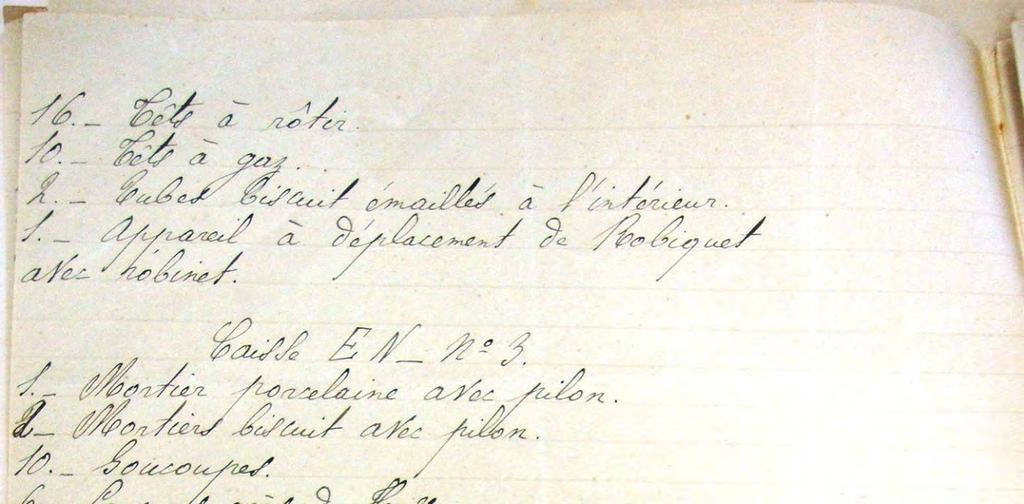 16. – Têts à rôtir.
10. – Têts à gaz.
2. – Tubes biscuit émaillés à l'intérieur.
1. – Appareil à déplacement de Robiquet
avec robinet.
Caisse E N – Nº 3.
1. – Mortier porcelaine avec pilon.
2 – Mortiers biscuit avec pilon.
10. – Soucoupes.